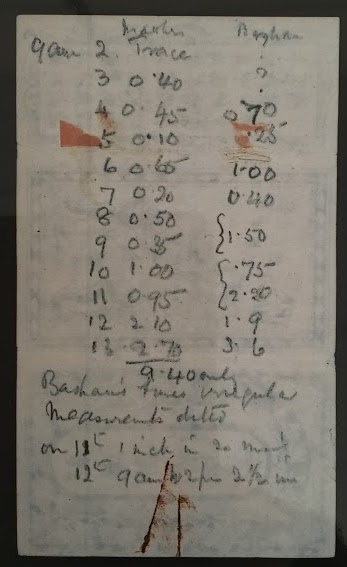 9am 2. Trace ?
3 0.40 ?
4 0.45 0.70
5 0.10 .25
6 0.65 1.00
7 0.20 0.40
8 0.50
9 0.35 1.50
10 1.00 .75
11 0.95 2.20
12 2.10 1.9
13 2.70 3.6
9.40 only
times irregular
Measurements ditto
on 11th 1 inch in 20
12th 9am 2 2½ ins